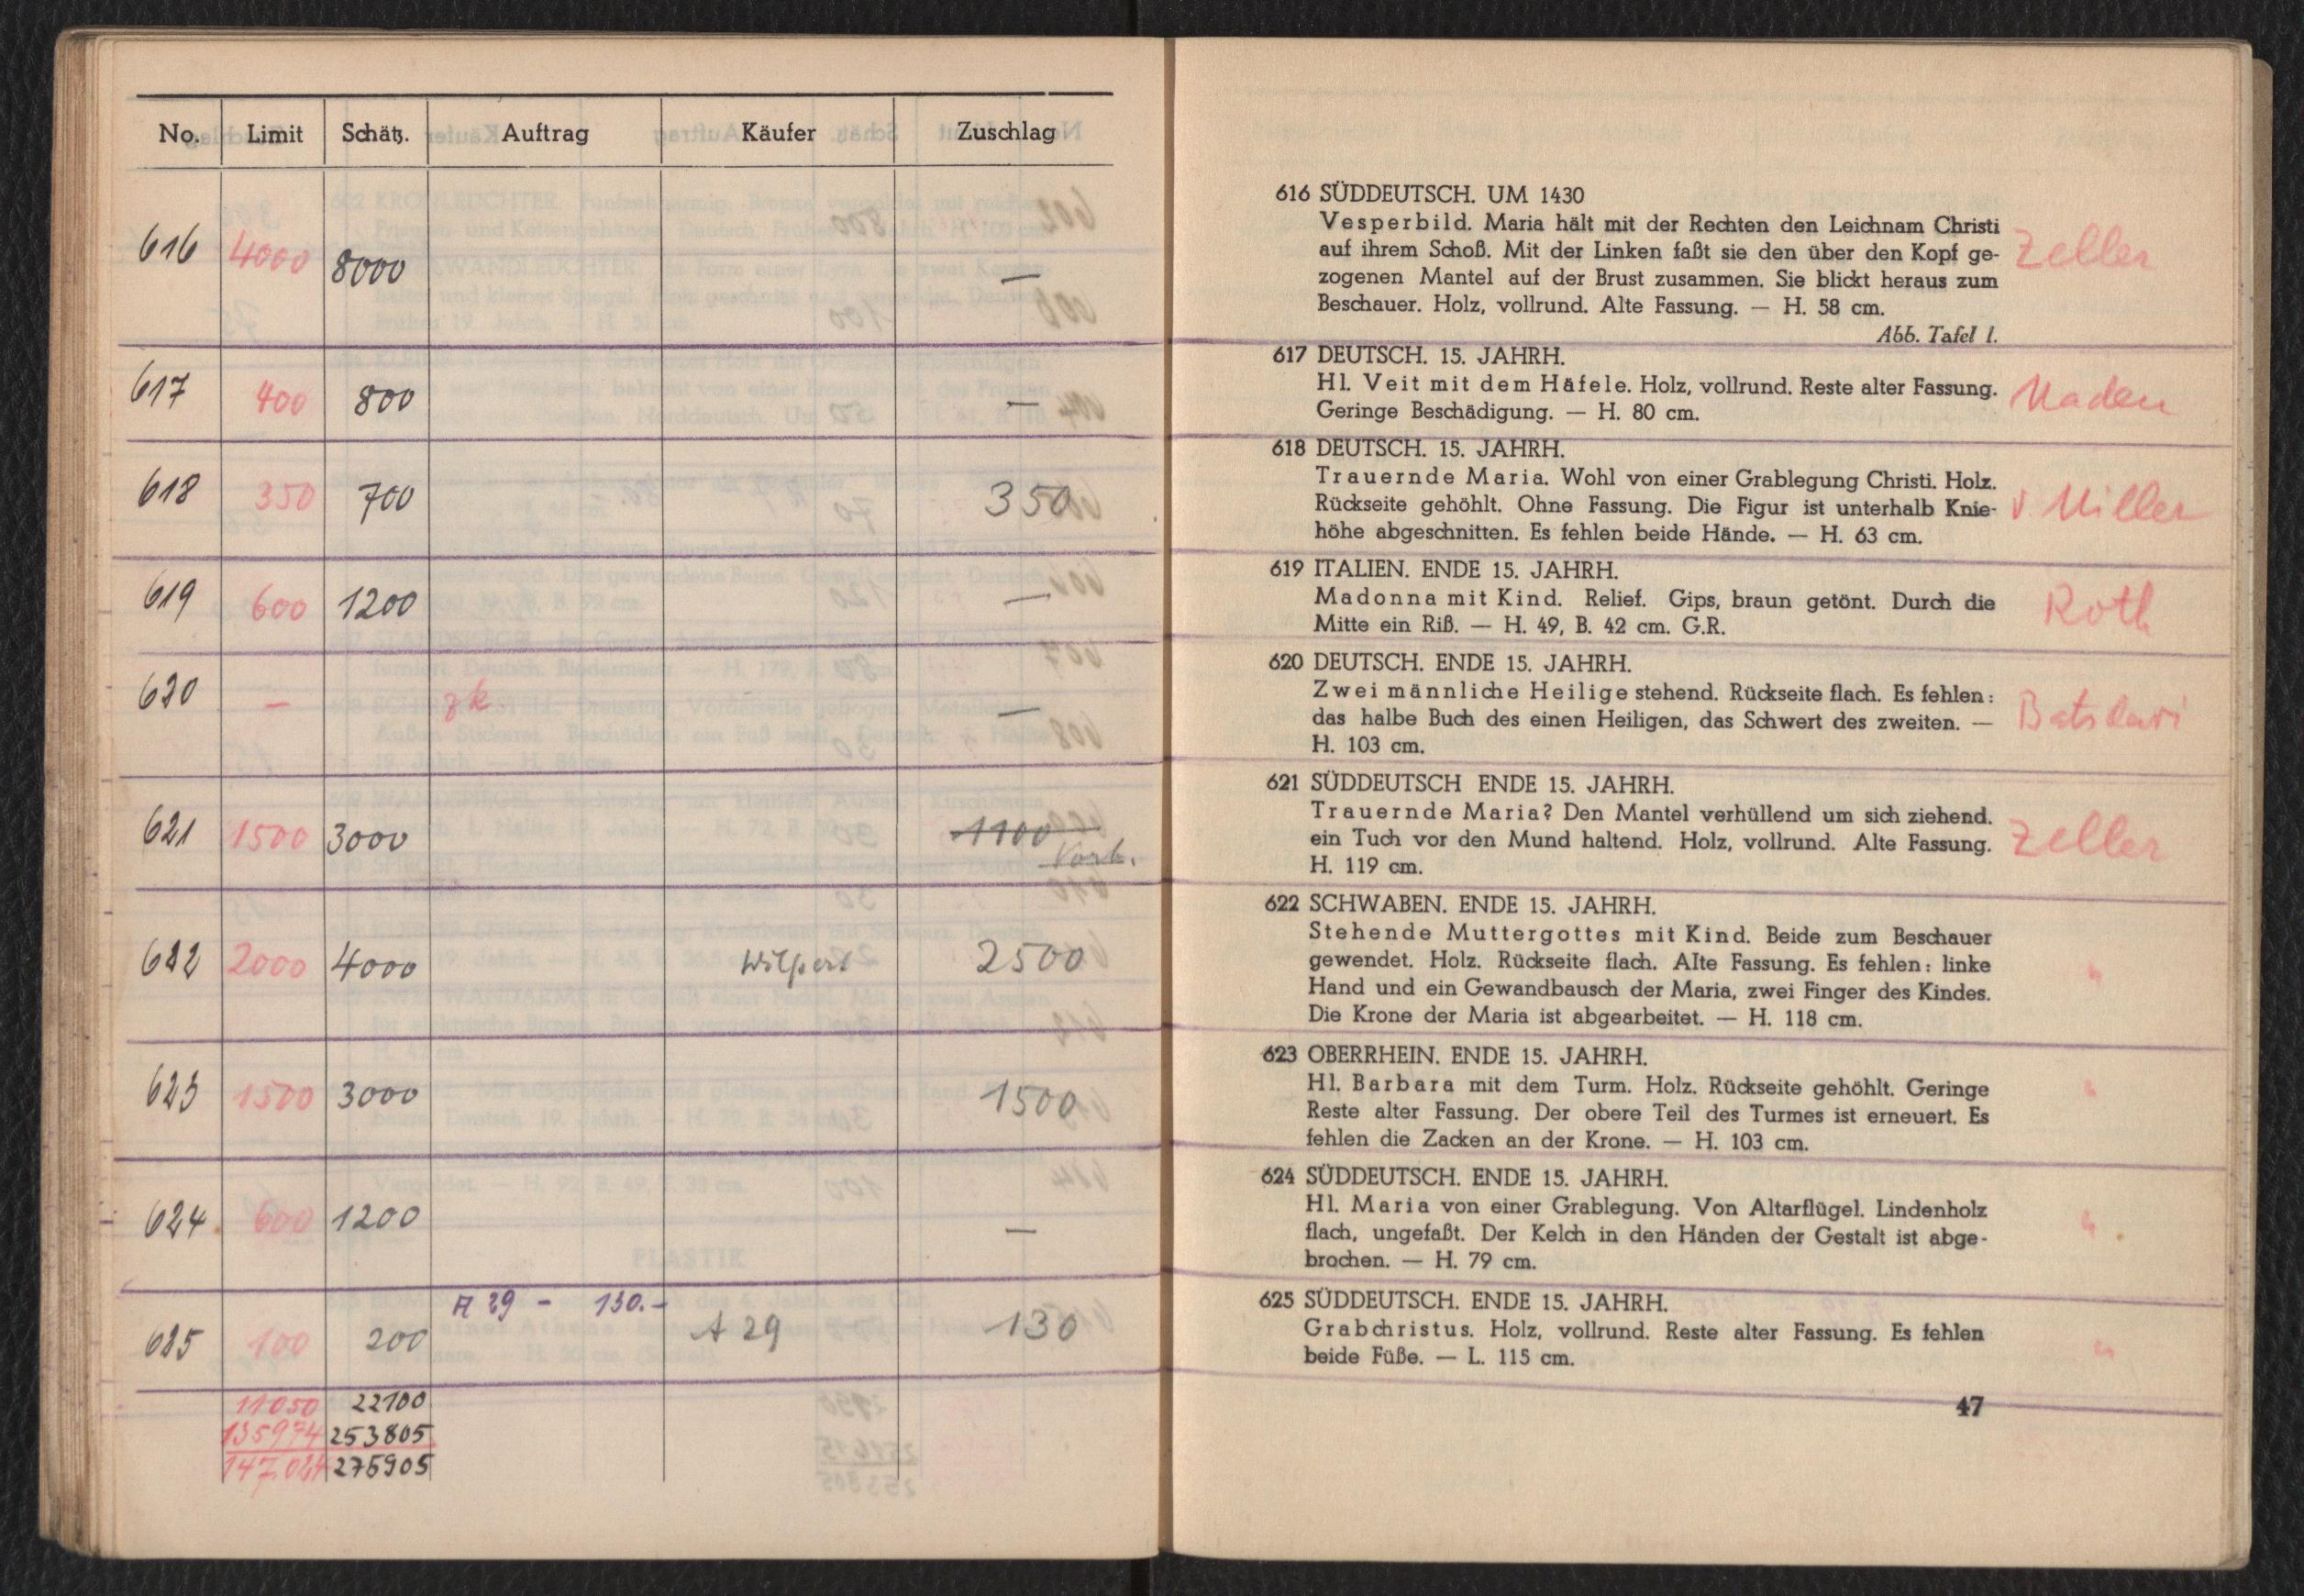 No. Limit Schätz. Auftrag Käufer Zuschlag
616 4000 8000 —
617 400 800 —
618 350 700 350
619 600 1200 —
620 — zk —
621 1500 3000 1100
622 2000 4000 Wilpert 2500
623 1500 3000 1500
624 600 1200 —
A 29 - 130.-
625 100 200 A 29 130
11050 22100
135974 253805
147.024 275905
616 SÜDDEUTSCH. UM 1430
Vesperbild. Maria hält mit der Rechten den Leichnam Christi
auf ihrem Schoß. Mit der Linken faßt sie den über den Kopf ge- Zeller
zogenen Mantel auf der Brust zusammen. Sie blickt heraus zum
Beschauer. Holz, vollrund. Alte Fassung. — H. 58 cm.
Abb. Tafel 1.
617 DEUTSCH. 15. JAHRH.
Hl. Veit mit dem Häfele. Holz, vollrund. Reste alter Fassung.
Geringe Beschädigung. — H. 80 cm.
618 DEUTSCH. 15. JAHRH.
Trauernde Maria. Wohl von einer Grablegung Christi. Holz.
Rückseite gehöhlt. Ohne Fassung. Die Figur ist unterhalb Knie- v Miller
höhe abgeschnitten. Es fehlen beide Hände. — H. 63 cm.
619 ITALIEN. ENDE 15. JAHRH.
Madonna mit Kind. Relief. Gips, braun getönt. Durch die Roth
Mitte ein Riß. — H. 49, B. 42 cm. G.R.
620 DEUTSCH. ENDE 15. JAHRH.
Zwei männliche Heilige stehend. Rückseite flach. Es fehlen:
das halbe Buch des einen Heiligen, das Schwert des zweiten. —
H. 103 cm.
621 SÜDDEUTSCH ENDE 15. JAHRH.
Trauernde Maria? Den Mantel verhüllend um sich ziehend.
ein Tuch vor den Mund haltend. Holz, vollrund. Alte Fassung. Zeller
H. 119 cm.
622 SCHWABEN. ENDE 15. JAHRH.
Stehende Muttergottes mit Kind. Beide zum Beschauer
gewendet. Holz. Rückseite flach. Alte Fassung. Es fehlen: linke "
Hand und ein Gewandbausch der Maria, zwei Finger des Kindes.
Die Krone der Maria ist abgearbeitet. — H. 118 cm.
623 OBERRHEIN. ENDE 15. JAHRH.
Hl. Barbara mit dem Turm. Holz. Rückseite gehöhlt. Geringe "
Reste alter Fassung. Der obere Teil des Turmes ist erneuert. Es
fehlen die Zacken an der Krone. — H. 103 cm.
624 SÜDDEUTSCH. ENDE 15. JAHRH.
Hl. Maria von einer Grablegung. Von Altarflügel. Lindenholz "
flach, ungefaßt. Der Kelch in den Händen der Gestalt ist abge-
brochen. — H. 79 cm.
625 SÜDDEUTSCH. ENDE 15. JAHRH.
Grabchristus. Holz, vollrund. Reste alter Fassung. Es fehlen "
beide Füße. — L. 115 cm.
47